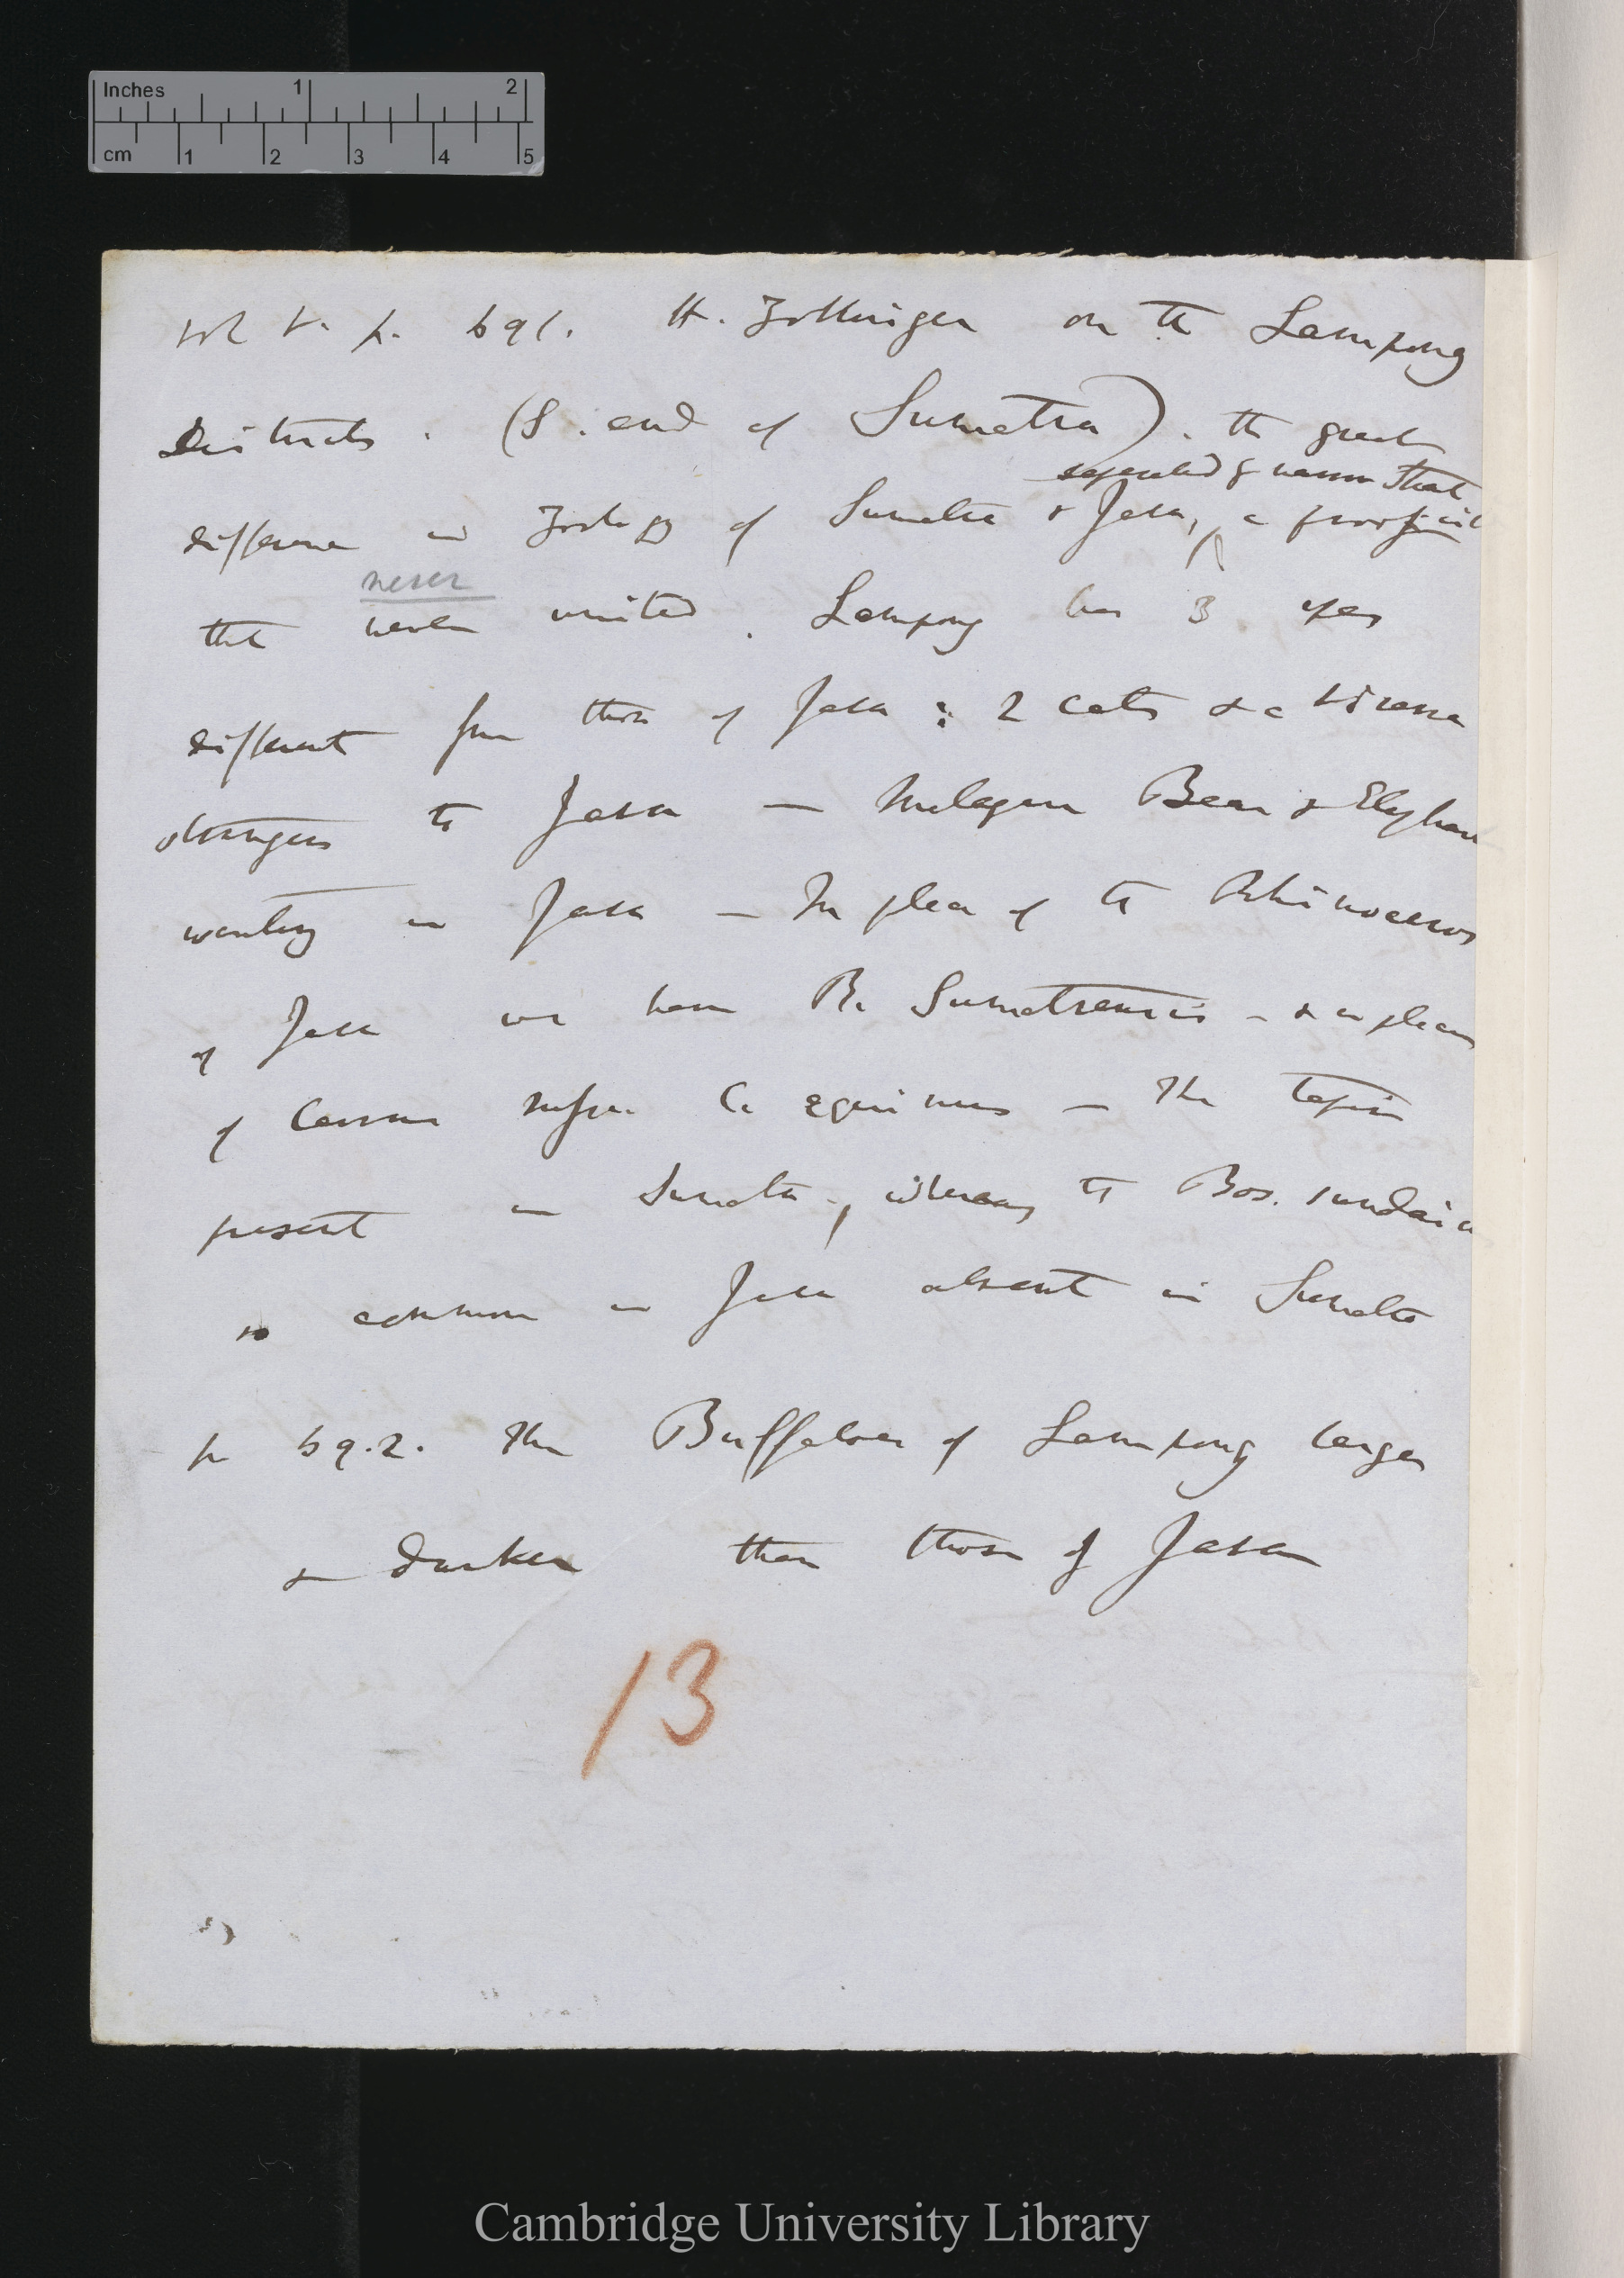 Inches 1 2
cm 1 2 3 4 5
Vol V. p. 691. H. Zollinger on the Lampong
Districts. (S. end of Sumatra). the great
separated by narrow Strait
difference in Zoology of Sumatra & Java, a proof
never
that never united. Lampong has 3 apes
different from those of Java: 2 cats & a Viverra
strangers to Java — Malayan Bear & Elephan
wanting in Java — In place of the Rhinoceros
of Java we have R. Sumatrensis — & in place
of Cervus rufus. C. equinus — The Tapir
present in Sumatra, whereas the Bos. sundaic
so common in Java absent in Sumatra
p 692. The Buffaloes of Lampong larger
& darker than those of Java
13
Cambridge University Library